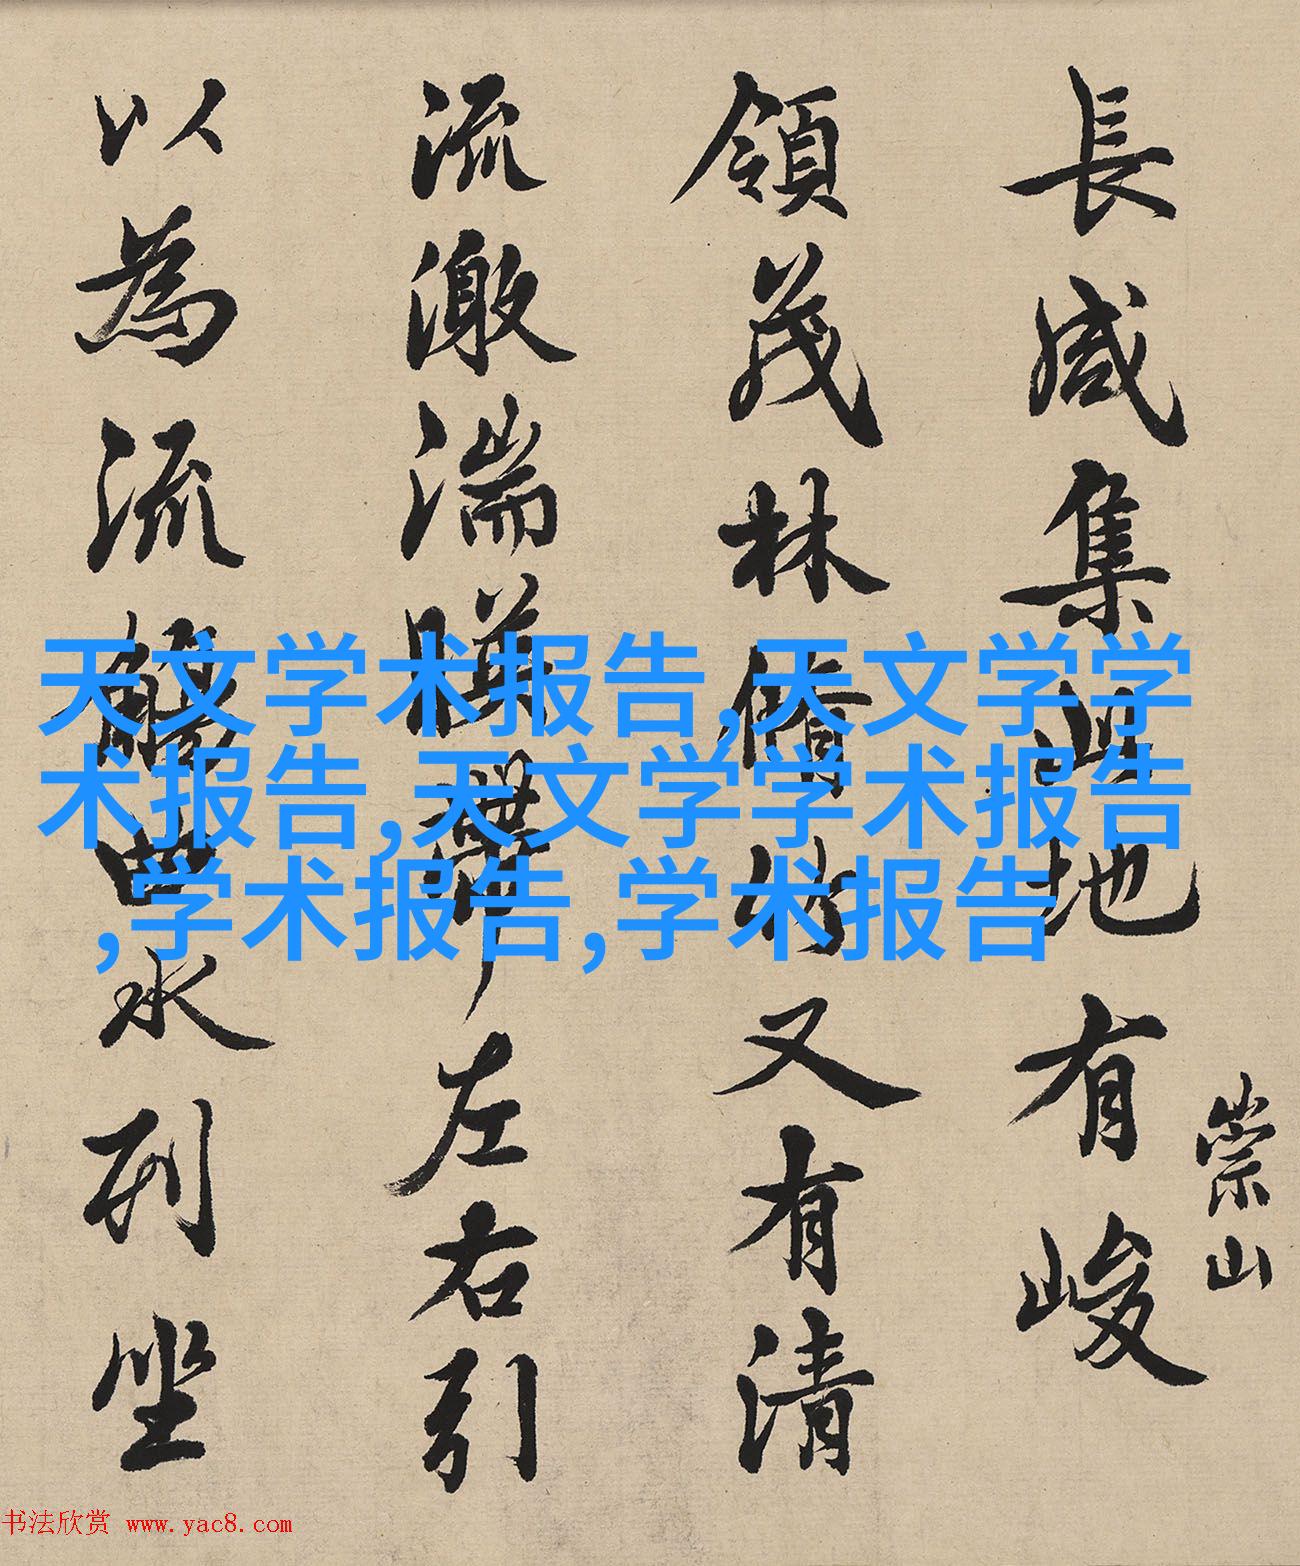 崇山
長咸集此地有峻
領茂林脩竹又有清
流激湍暎帶左右引
以為流觴曲水列坐
天文学术报告,天文学学
术报告,天文学学术报告
,学术报告,学术报告
书法欣赏 www.yac8.com